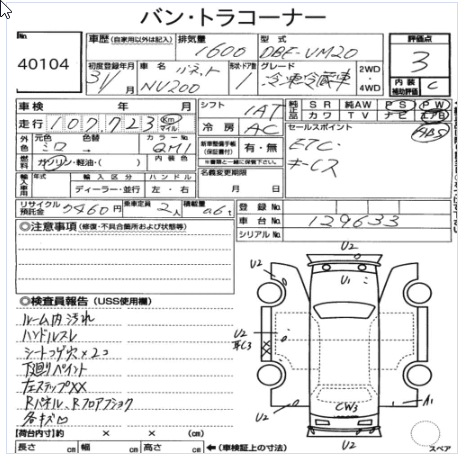 バン・トラコーナー
No 40104
車歴 (自家用以外は記入) 排気量 1600 型式 DBF-VM20 評価点 3
初度登録年月 31/ 月 車名 NV200 バネット 形状・ドア数 グレード 冷凍冷蔵車 2WD・4WD 内装補助評価 C
車検 年 月 シフト IAT 純正品 SR 純AW PS PW
走行 107,723 km マイル カワ TV ナビ エアB
外色 元色 シロ 色替 カラーNo. QM1 冷房 AC セールスポイント ABS
燃料 ガソリン・軽油・( ) 内装色 新車整備手帳(保証書付) 有・無 ETC
※書類と一緒に保管下さい キーレス
輸入車用 年式 輸入区分 ハンドル 名義変更期限
ディーラー・並行 左・右 月 日
リサイクル預託金 円 乗車定員 2人 積載量 t 登録No.
車台No. 129633
シリアルNo.
◎注意事項 (修復・不具合箇所および状態等)
U2
U2 U1
◎検査員報告 (USS使用欄)
ルーム内汚れ
ハンドルスレ
シートコゲ穴×2コ
下廻りペイント
左ステップXX
Rパネル、Rフロアプッショク
各キズ凹
U2
C3
CW3
U2 A1
U2
【荷台内寸】約 × × (cm)
長さ cm 幅 cm 高さ cm ←(車検証上の寸法) スペア